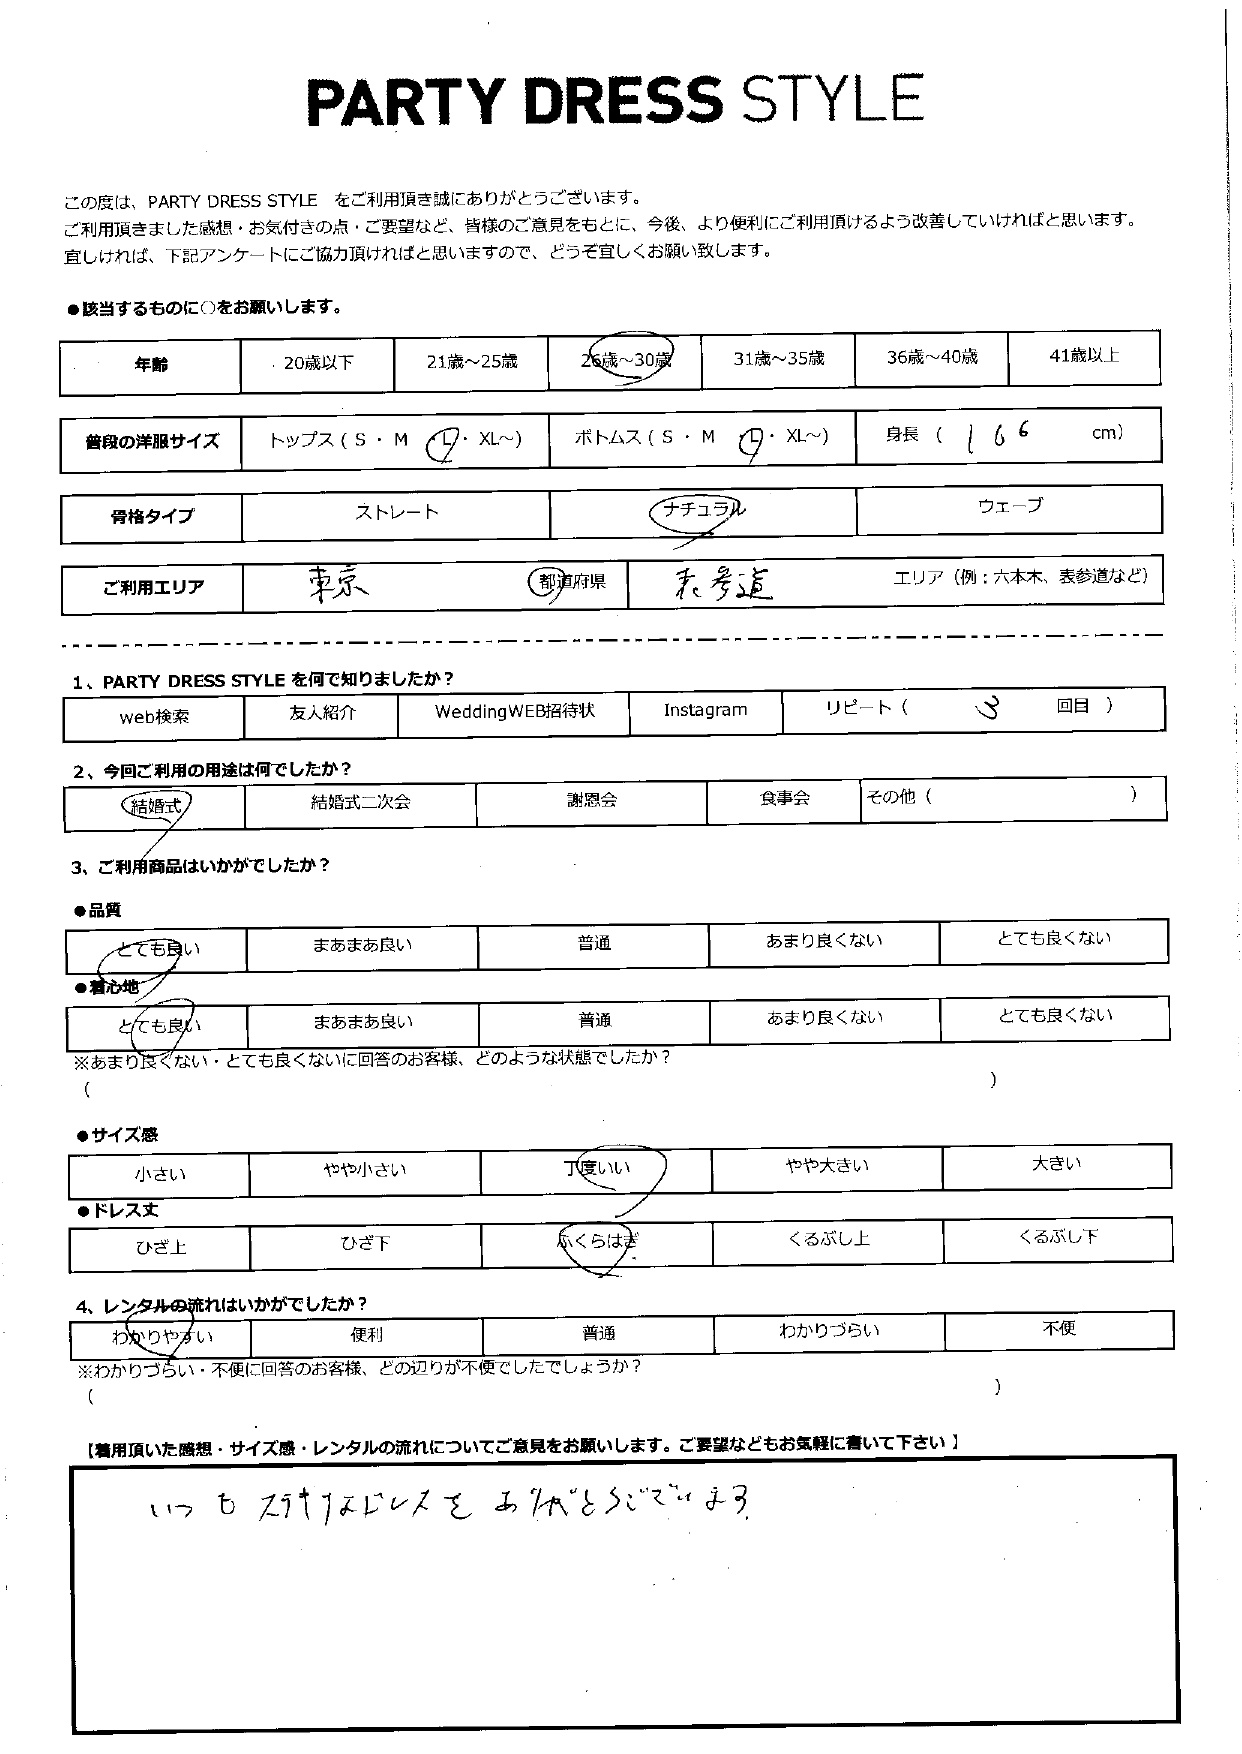 PARTY DRESS STYLE
この度は、PARTY DRESS STYLE をご利用頂き誠にありがとうございます。
ご利用頂きました感想・お気付きの点・ご要望など、皆様のご意見をもとに、今後、より便利にご利用頂けるよう改善していければと思います。
宜しければ、下記アンケートにご協力頂ければと思いますので、どうぞ宜しくお願い致します。
●該当するものに○をお願いします。
年齢 20歳以下 21歳～25歳 26歳～30歳 31歳～35歳 36歳～40歳 41歳以上
普段の洋服サイズ トップス ( S ・ M ・ L ・ XL～) ボトムス ( S ・ M ・ L ・ XL～) 身長 ( 166 cm)
骨格タイプ ストレート ナチュラル ウェーブ
ご利用エリア 東京 都道府県 表参道 エリア（例：六本木、表参道など）
1、PARTY DRESS STYLE を何で知りましたか？
web検索 友人紹介 WeddingWEB招待状 Instagram リピート（ 3 回目 ）
2、今回ご利用の用途は何でしたか？
結婚式 結婚式二次会 謝恩会 食事会 その他（ ）
3、ご利用商品はいかがでしたか？
●品質
とても良い まあまあ良い 普通 あまり良くない とても良くない
●着心地
とても良い まあまあ良い 普通 あまり良くない とても良くない
※あまり良くない・とても良くないに回答のお客様、どのような状態でしたか？
( )
●サイズ感
小さい やや小さい 丁度いい やや大きい 大きい
●ドレス丈
ひざ上 ひざ下 ふくらはぎ くるぶし上 くるぶし下
4、レンタルの流れはいかがでしたか？
わかりやすい 便利 普通 わかりづらい 不便
※わかりづらい・不便に回答のお客様、どの辺りが不便でしたでしょうか？
( )
【着用頂いた感想・サイズ感・レンタルの流れについてご意見をお願いします。ご要望などもお気軽に書いて下さい 】
いつも ステキなドレスを ありがとうございます